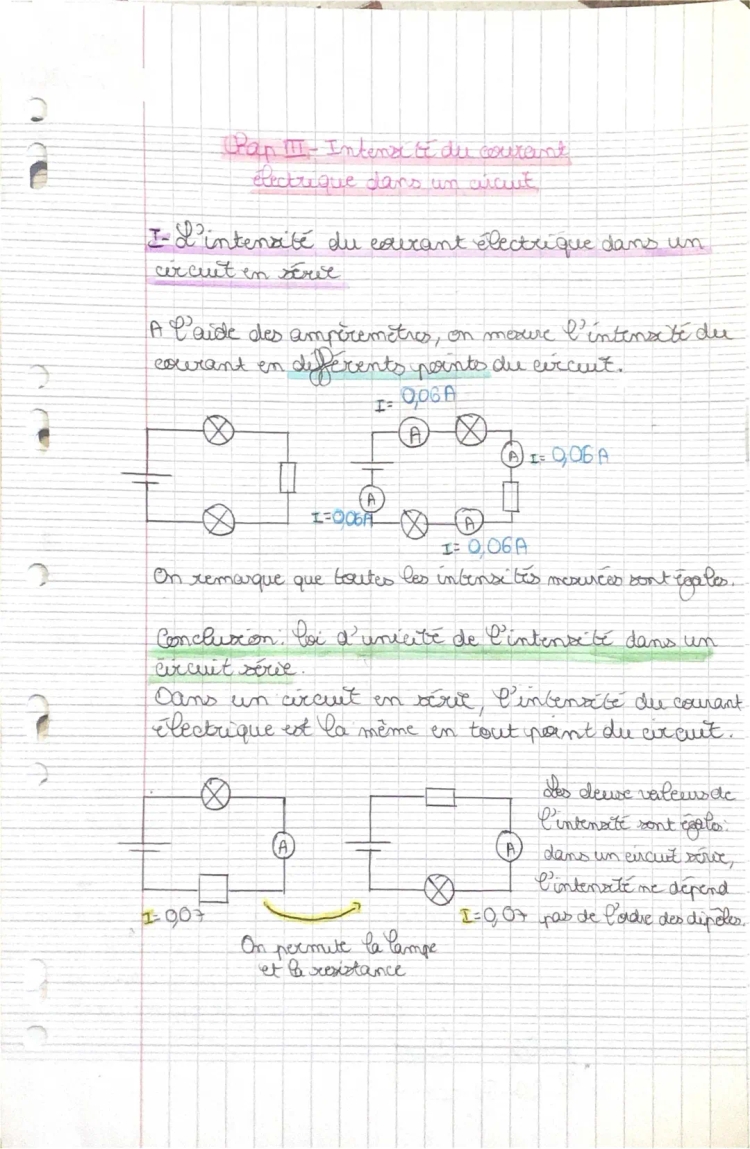 Chap III - Intensité du courant
électrique dans un circuit
I - L'intensité du courant électrique dans un
circuit en série
A l'aide des ampèremètres, on mesure l'intensité du
courant en différents points du circuit.
I = 0,06 A
A
A I = 0,06 A
A
I = 0,06 A
A
I = 0,06 A
On remarque que toutes les intensités mesurées sont égales.
Conclusion : loi d'unicité de l'intensité dans un
circuit série.
Dans un circuit en série, l'intensité du courant
électrique est la même en tout point du circuit.
A
I = 0,07
A
I = 0,07
On permute la lampe
et la resistance
Les deux valeurs de
l'intensité sont égales :
dans un circuit série,
l'intensité ne dépend
pas de l'odre des dipôles.